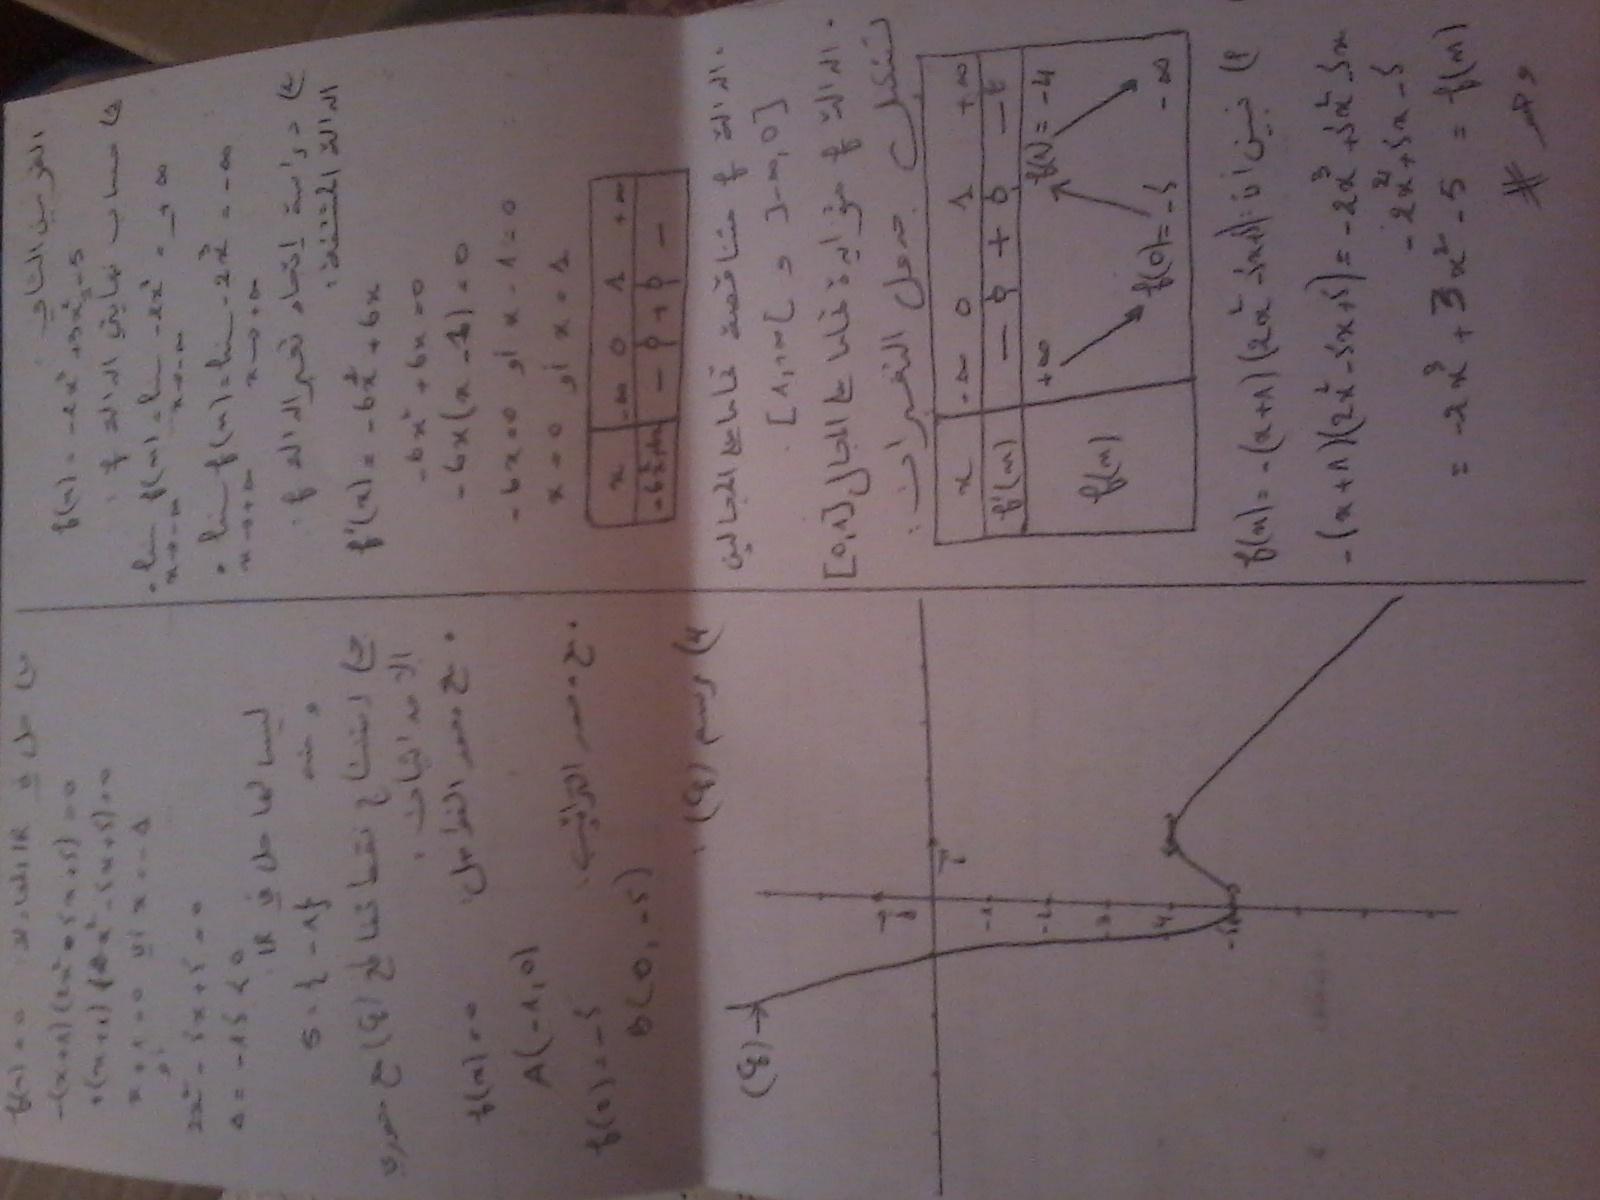 التمرين الثاني
f(x) = -2x³ + 3x² - 5
حساب نهايتي الدالة f :
lim f(x) = lim -2x³ = +∞
x→-∞ x→-∞
lim f(x) = lim -2x³ = -∞
x→+∞ x→+∞
دراسة إتجاه تغير الدالة f :
الدالة المشتقة:
f'(x) = -6x² + 6x
-6x² + 6x = 0
-6x(x - 1) = 0
-6x = 0 أو x - 1 = 0
x = 0 أو x = 1
x -∞ 0 1 +∞
-6x²+6x - 0 + 0 -
• الدالة f متناقصة تماما على المجالين
]-∞, 0] و [1, +∞[ .
• الدالة f متزايدة تماما على المجال [0, 1]
تشكيل جدول التغيرات:
x -∞ 0 1 +∞
f'(x) - 0 + 0 -
f(x) +∞ f(0) = -5 f(1) = -4 -∞
نبين أن:
f(x) = -(x+1)(2x² - 5x + 5)
-(x+1)(2x² - 5x + 5) = -2x³ + 5x² - 5x
-2x² + 5x - 5
= -2x³ + 3x² - 5 = f(x)
وهو #
ب) حل في IR المعادلة f(x) = 0
-(x+1)(2x² - 5x + 5) = 0
x + 1 = 0 أي x = -1
أو
2x² - 5x + 5 = 0
Δ = -15 < 0
ليس لها حل في IR
ومنه
S = { -1 }
ج) إستنتاج نقاط تقاطع (Cf) مع محوري
الإحداثيات :
• مع محور الفواصل
f(x) = 0
A(-1, 0)
• مع محور التراتيب :
f(0) = -5
B(0, -5)
4) رسم (Cf) :
(Cf)
-1
-2
-3
-4
-5